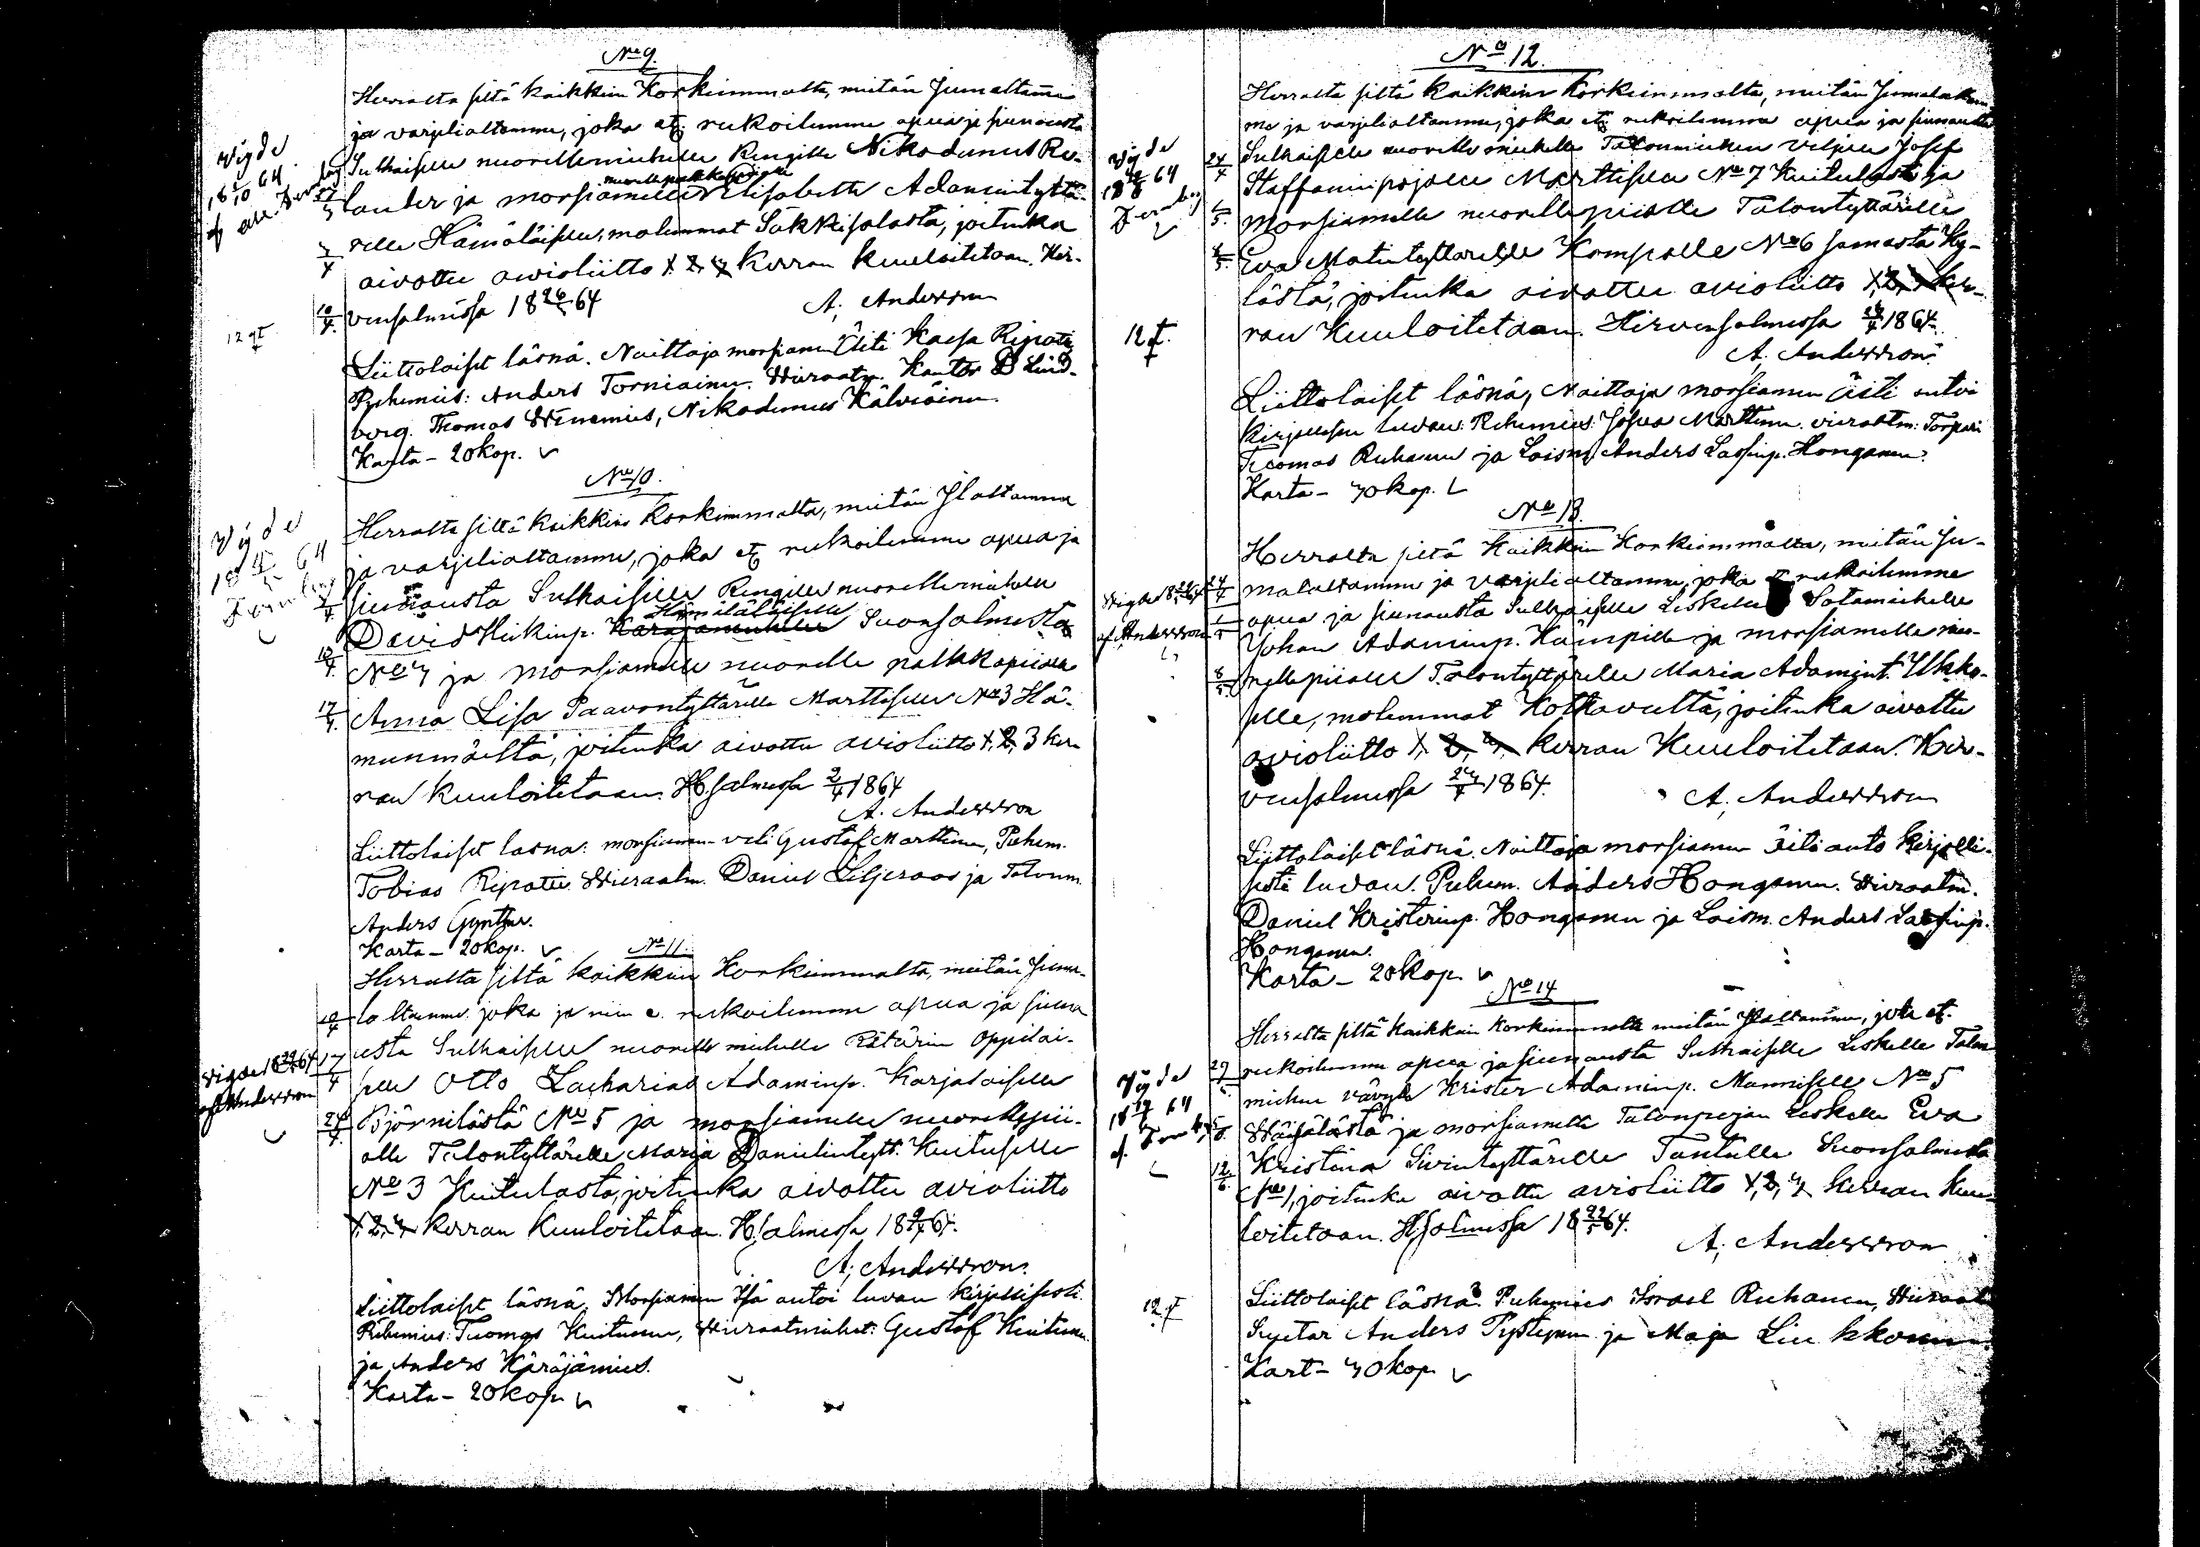 No 9.
Herralta siltä kaikkein Korkeimmalta, meitän Jumaltamme
ja varjelialtamme, joka etc rukoilemme apua ja siunausta
Sulhaiselle nuorellemiehelle Rengille Nikodemus Re-
nuorellepalkkapiialle
lander ja morsiamelle Elisabeth Adamintyttä-
relle Hämäläiselle, molemmat Säkkisalosta, joitenka
aivottu avioliitto 1, 2, 3 kerran kuuloitetaan. Hir-
vensalmissa 18 26/3 64
A. Andersson
Liittolaiset läsnä. Naittaja morsiamen Äiti Kaisa Ripatti
Puhemies: Anders Torniainen. Vieraatm. Kantor B Lind-
berg. Thomas Hinenius, Nikodemus Kälviäinen.
Karta - 20 kop.
Vigde
18 64
12
No 10.
Herralta siltä kaikkein Korkeimmalta, meitän Jlaltamme
ja varjelialtamme, joka etc rukoilemme apua ja
siunausta Sulhaiselle Rengille nuorellemiehelle
Hämäläiselle
David Heikinp. Käräjämiehelle Suonsalmesta
No 7 ja morsiamelle nuorelle palkkapiialle
Anna Lisa Paavontyttärelle Marttiselle No 3 Hä-
munmäeltä, joitenka aivottu avioliitto 1, 2, 3 ker-
ran kuuloitetaan. H.salmessa 2/4 1864
A. Andersson
Liittolaiset läsnä: morsiamen veli Gustaf Marttinen, Puhem.
Tobias Ripatti. Vieraatm. Daniel Liljeroos ja Talonm.
Anders Gynther.
Karta - 20 kop.
Vigde
18 64
No 11.
Herralta siltä kaikkein Korkeimmalta, meitän Juma-
laltamme joka ja niin e. rukoilemme apua ja siuna
usta Sulhaiselle nuorelle miehelle Rätärin Oppilai-
selle Otto Zacharias Adaminp. Karjalaiselle
Björnilästä No 5 ja morsiamelle nuorellepii-
alle Talontyttärelle Maria Danielintytt. Kuituselle
No 3 Kuitulasta, joitenka aivottu avioliitto
1, 2, 3 kerran kuuloitetaan. H.salmessa 18 9/4 64.
A. Andersson.
Liittolaiset läsnä. Morsiamen Isä antoi luvan kirjallisesti.
Puhemies: Tuomas Kuitunen, Vieraatmiehet: Gustaf Kuitunen
ja Anders Käräjämies.
Karta - 20 kop
Vigde
af A Andersson
No 12.
Herralta siltä kaikkein Korkeimmalta, meitän Jumalaltam-
me ja varjelialtamme, joka etc rukoilemme apua ja siunausta
Sulhaiselle nuorelle miehelle Talonmiehen veljelle Josef
Staffaninpojalle Marttiselle No 7 Kuitulasta ja
morsiamelle nuorellepiialle Talontyttärelle
Eva Matintyttärelle Kompalle No 6 samasta Ky-
lästä, joitenka aivottu avioliitto 1, 2, 3 ker-
ran Kuuloitetaan. Hirvensalmessa 1864.
A. Andersson.
Liittolaiset läsnä, Naittaja morsiamen äiti antoi
kirjallisen luvan. Puhemies: Josua Marttinen. vieraatm: Torpari
Tuomas Ruhanen ja Loism. Anders Lassinp. Honganen.
Karta - 30 kop.
Vigde
18 64
12
No 13.
Herralta siltä Kaikkein Korkeimmalta, meitän Ju-
malaltamme ja varjelialtamme, joka etc rukoilemme
apua ja siunausta Sulhaiselle Leskelle Sotamiehelle
Johan Adaminp. Kämpille ja morsiamelle nuo-
rellepiialle Talontyttärelle Maria Adamint. Ukko-
selle, molemmat Kotkavueltä, joitenka aivottu
avioliitto 1, 2, 3, kerran Kuuloitetaan. Hir-
vensalmessa 1864.
A. Andersson
Liittolaiset läsnä. Naittaja morsiamen Äiti anto kirjalli-
sesti luvan. Puhem. Anders Honganen. Vieraatm.
Daniel Kristerinp. Honganen ja Loism. Anders Lassinp.
Honganen.
Karta - 20 kop.
Vigde
af Andersson
No 14
Herralta siltä kaikkein korkeimmalta meitän Jlaltamme, joka et.
rukoilemme apua ja siunausta Sulhaiselle Leskelle Talon
miehen vävylle Krister Adaminp. Manniselle No 5
Väisälästä ja morsiamelle Talonpojan Leskelle Eva
Kristina Sivintyttärelle Tantulle Suonsalmesta
No 1, joitenka aivottu avioliitto 1, 2, 3 kerran kuu-
loitetaan. H.salmessa 18 22/5 64.
A. Andersson
Liittolaiset läsnä. Puhemies Israel Ruhanen, Vieraat
Suutar Anders Pystynen ja Maja Liukkonen
Kart - 30 kop
Vigde
18 64
12